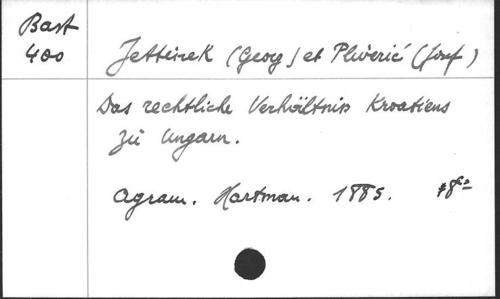 Bast
400
Jettinek (Georg) et Pliverić (Josef)
Das rechtliche Verhältnis Kroatiens
zu Ungarn.
Agram. Hartman. 1885. 8°